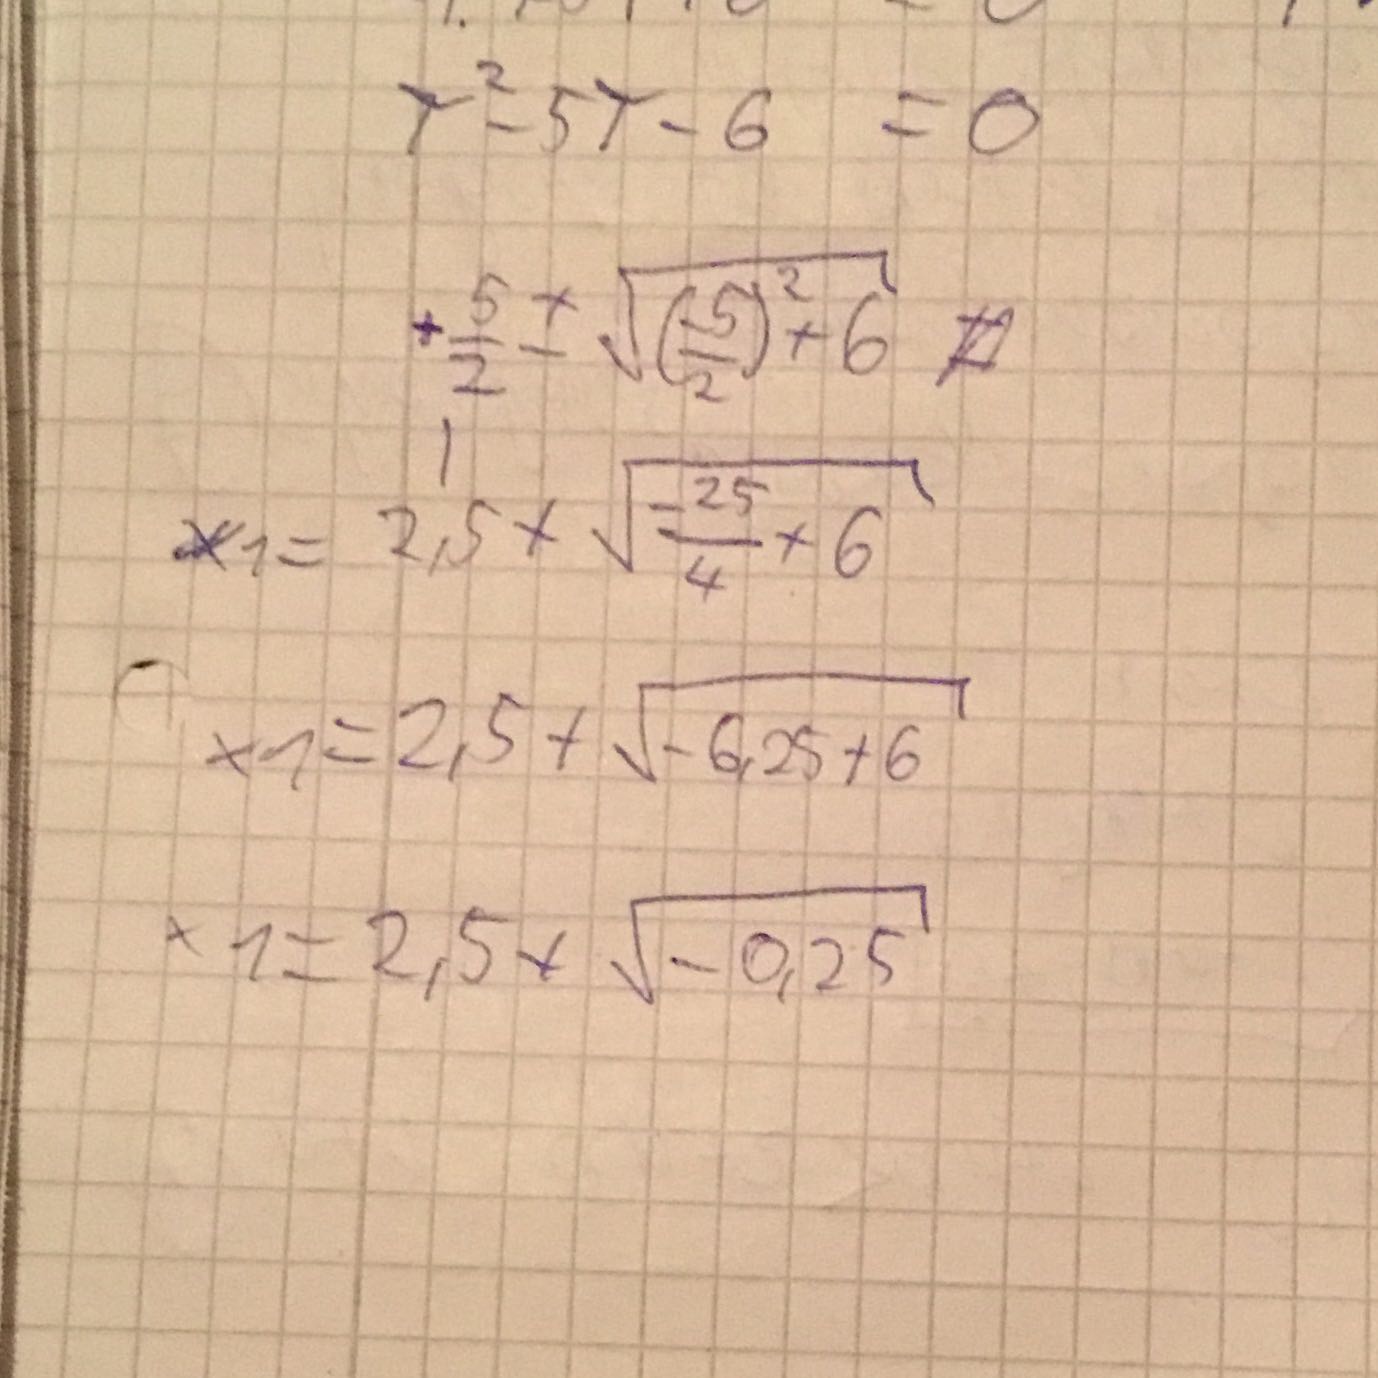 r² - 5r - 6 = 0
+ 5/2 ± √((-5/2)² + 6)
x1 = 2,5 + √(-25/4 + 6)
x1 = 2,5 + √(-6,25 + 6)
x1 = 2,5 + √(-0,25)